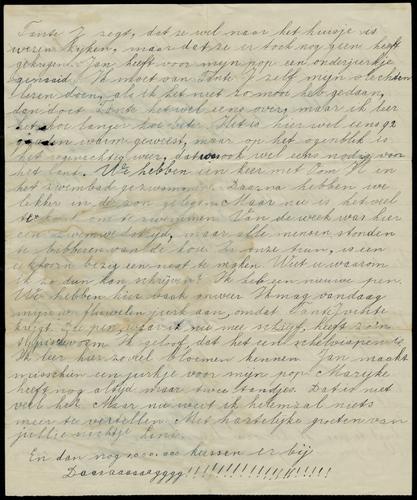 Tante J zegt, dat ze wel naar het huisje is
wezen kijken, maar dat ze er toch nog geen heeft
gekregen. Jan heeft voor mijn pop een onderjurkje
genaaid. Ik moet van Tante J zelf mijn vlechten
leren doen, als ik het niet zo mooi heb gedaan,
dan doet Tante het wel eens over, maar ik leer
het hoe langer hoe beter. Het is hier wel eens
warm geweest, maar op het ogenblik is
het regenachtig weer, dat is ook wel eens nodig voor
het land. We hebben een keer met Oom H en
in het zwembad gezwommen. Daarna hebben we
lekker in de zon gelegen. Maar nu is het wel
te koud om te zwemmen. Van de week was hier
een zwemwedstrijd, maar alle mensen stonden
te bibberen van de kou. In onze tuin, is een
bezig een nest te maken. Weet u waarom
ik zo dun kan schrijven? Ik heb een nieuwe pen.
We hebben hier vaak onweer. Ik mag vandaag
mijn fluwelen jurk aan, omdat Tante visite
krijgt. De pen, waar ik nu mee schrijf, heeft zo'n
vorm. Ik geloof, dat het een is.
Ik leer hier zoveel bloemen kennen. Jan maakt
misschien een jurkje voor mijn pop. Marijke
heeft nog altijd maar twee tandjes. Dat is niet
veel hè. Maar nu weet ik helemaal niets
meer te vertellen. Met hartelijke groeten van
jullie nichtje Tine.
En dan nog 10.000.000 kussen er bij
Daaaaaaaagggg!!!!!!!!!!!!!!!!!!